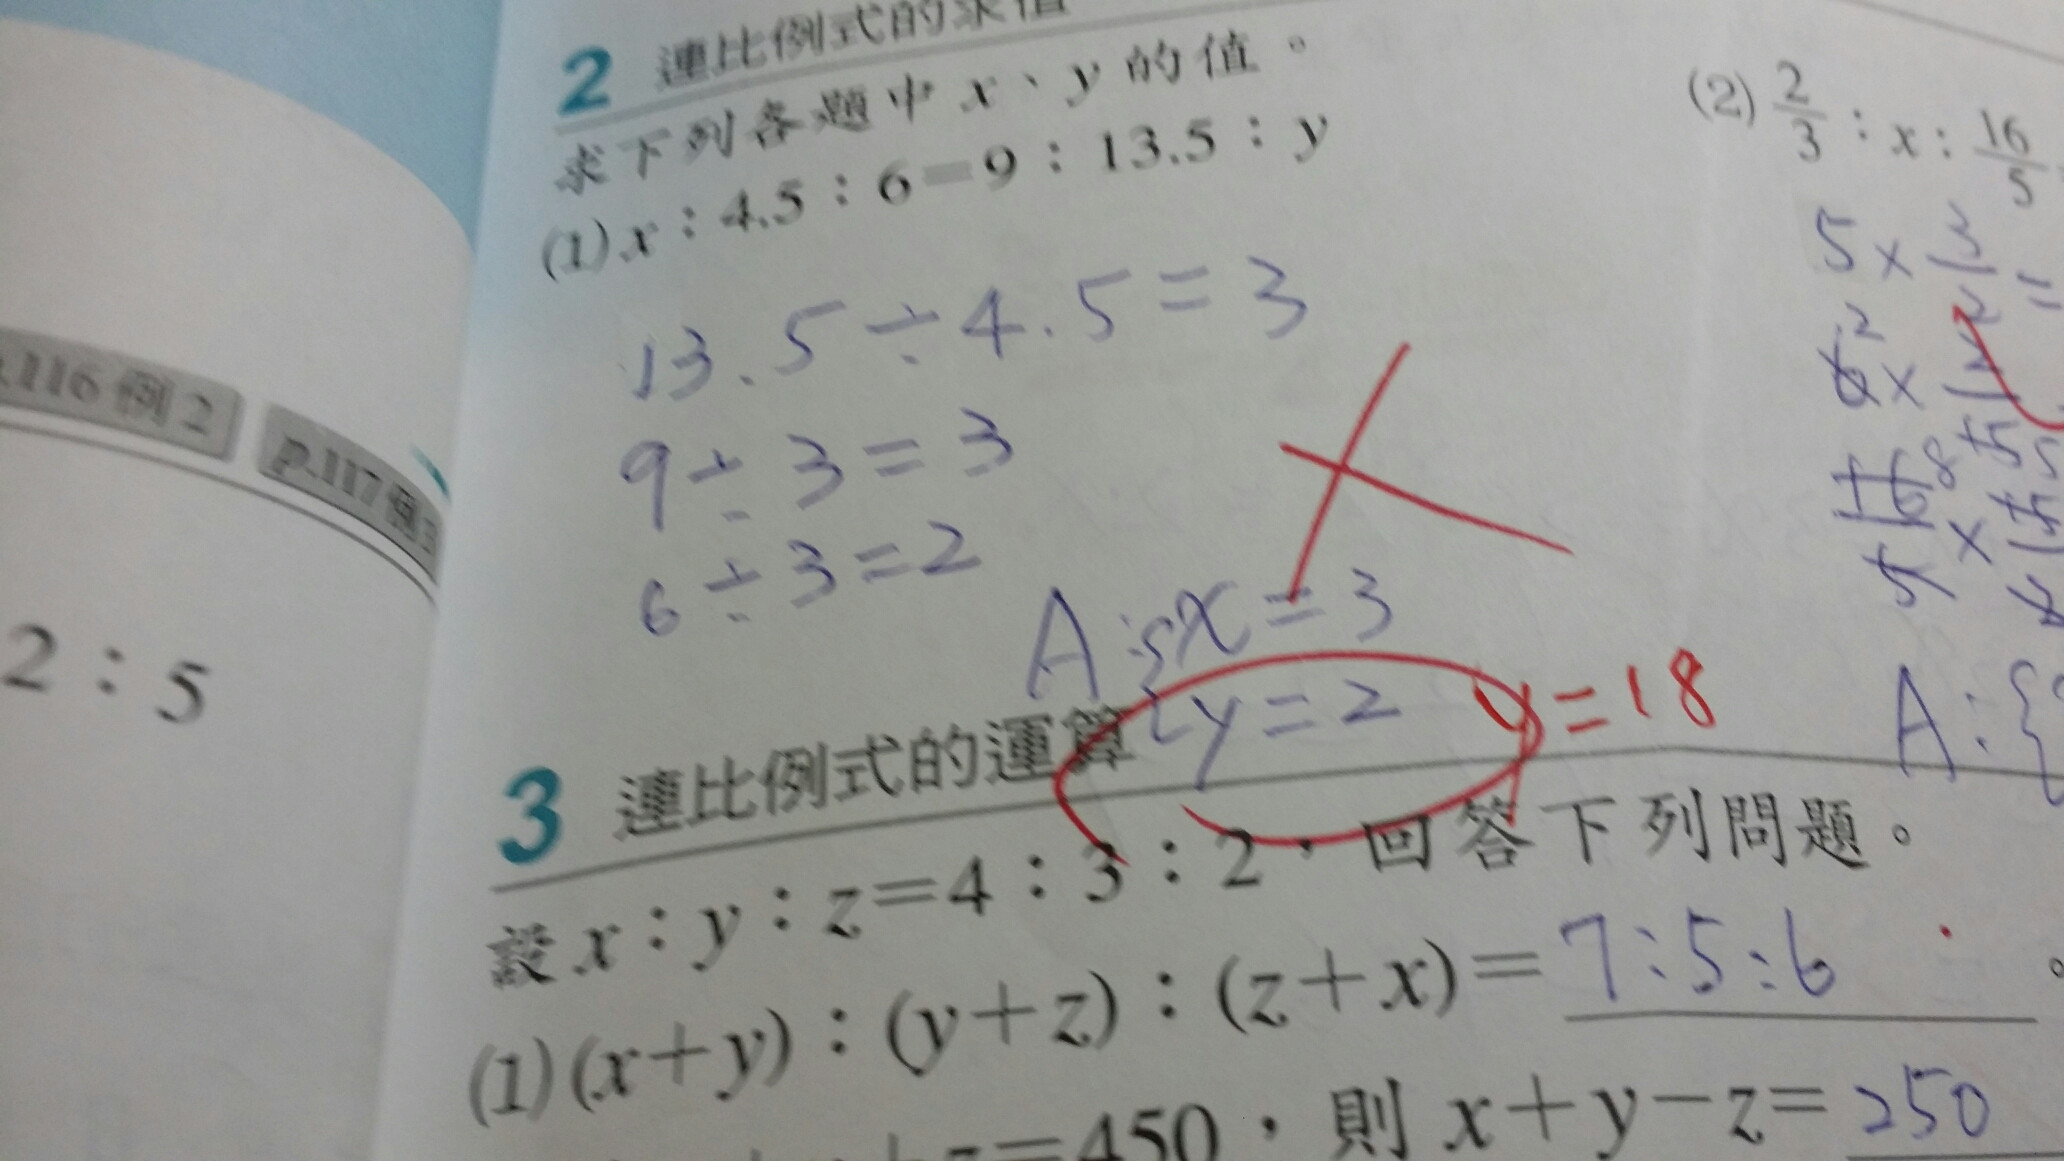 2 連比例式的求值
求下列各題中 x、y 的值。
(1) x：4.5：6＝9：13.5：y
13.5÷4.5=3
9÷3=3
6÷3=2
A:{x=3
y=2
y=18
(2) 2/3：x：16/5
5×3/2=
A:{
p.116 例2
p.117 例3
2：5
3 連比例式的運算
設 x：y：z＝4：3：2，回答下列問題。
(1) (x＋y)：(y＋z)：(z＋x)＝7:5:6。
z＝450，則 x＋y－z＝250